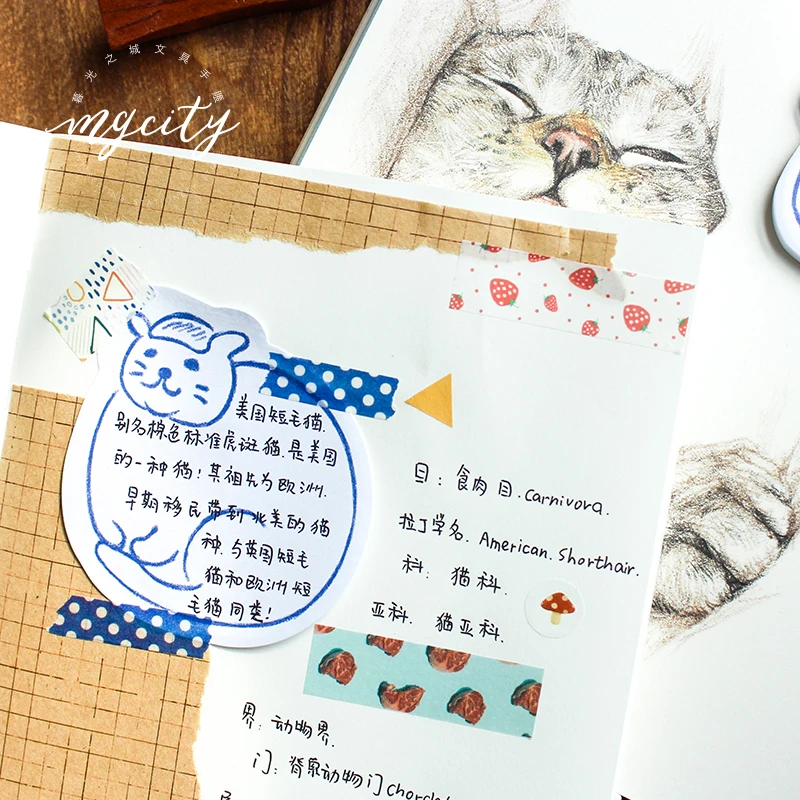 暮光之城文具手账
mgcity
美国短毛猫.
别名棉色标准虎斑猫.是美国
的一种猫!其祖先为欧洲.
早期移民带到北美的猫
种.与英国短毛
猫和欧洲短
毛猫同类!
目:食肉目.carnivora.
拉丁学名.American.Shorthair.
科:猫科.
亚科.猫亚科.
界:动物界.
门:脊索动物门